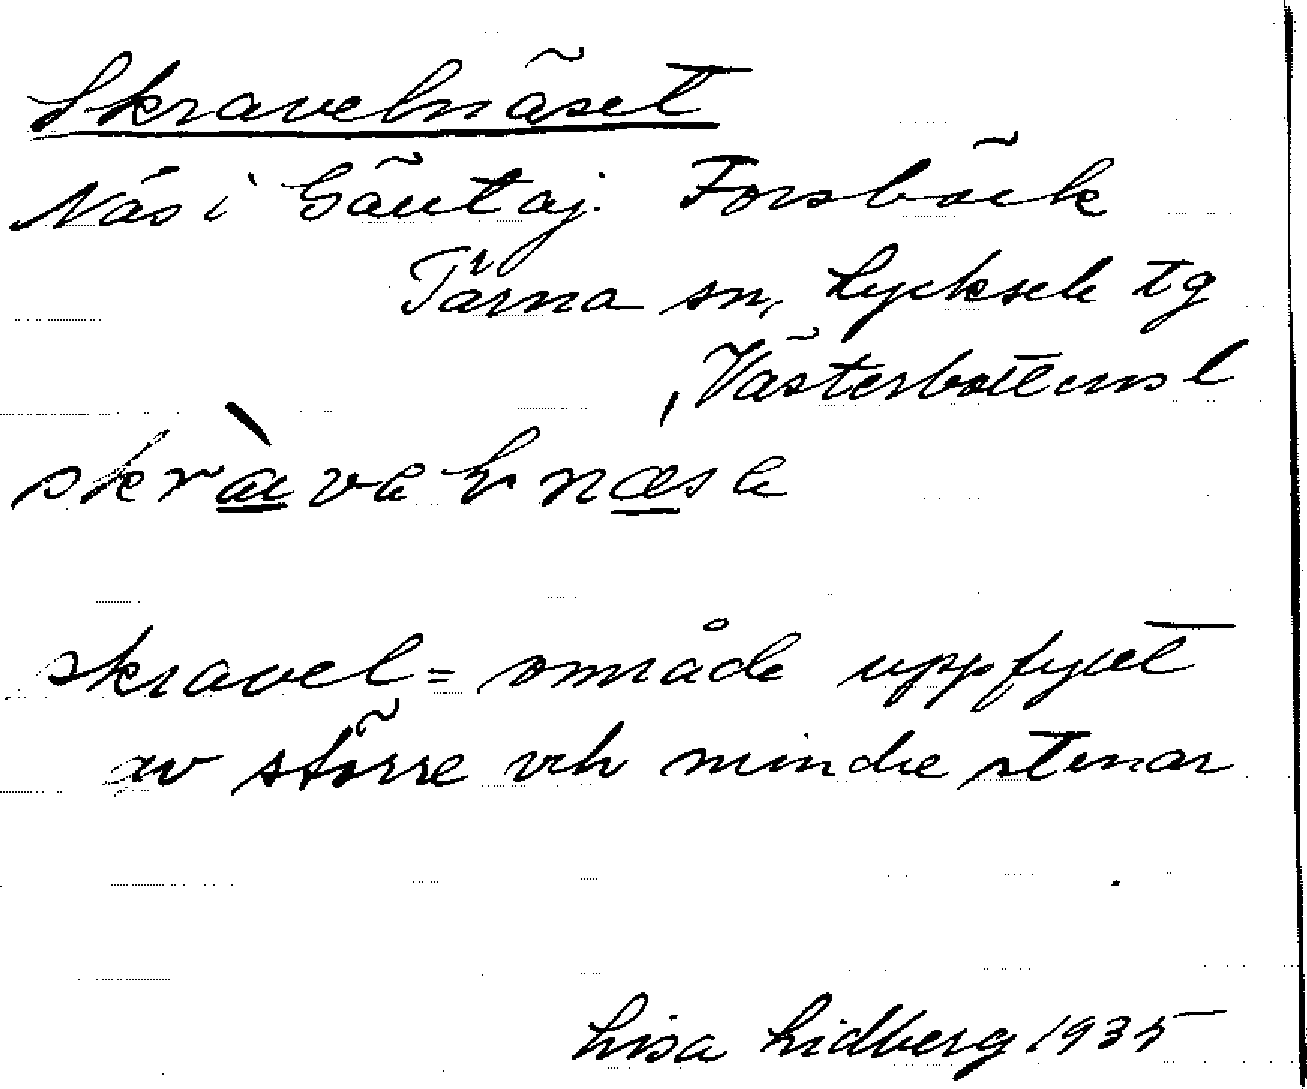 Skravelnäset
Näs i Gäutaj. Forsbäck
Tärna sn, Lycksele tg
, Västerbottens l
skràvelnæse
skravel = område uppfyllt
av större och mindre stenar
Lisa Lidberg 1935